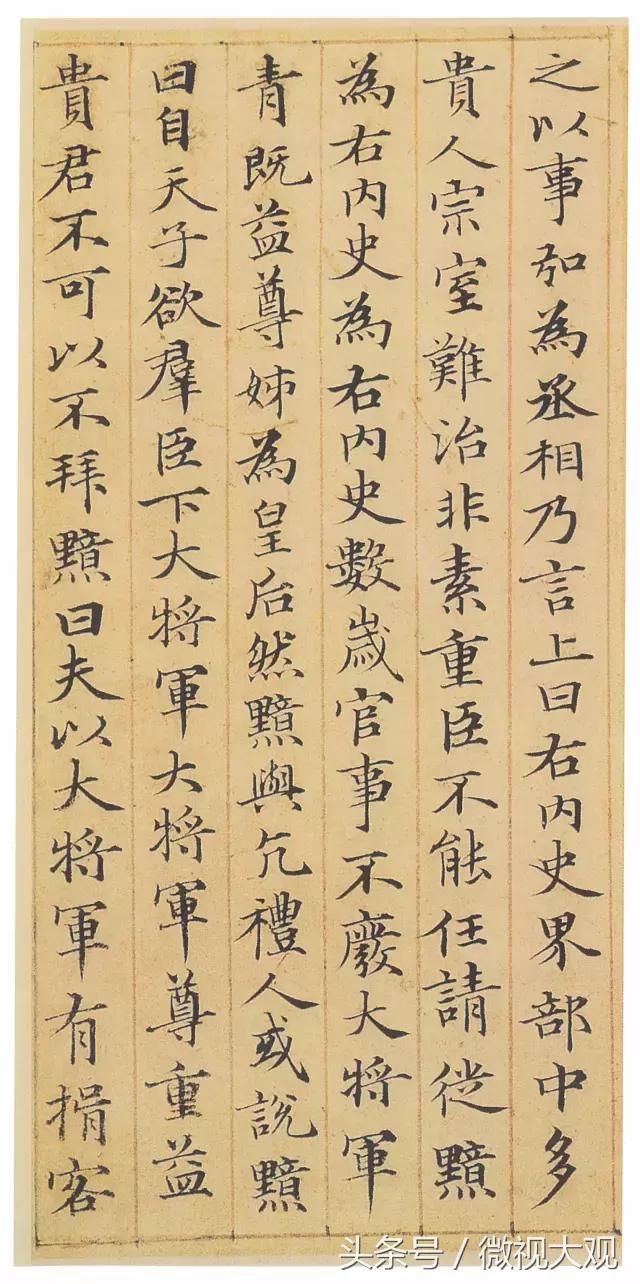 之以事弘為丞相乃言上曰右內史界部中多
貴人宗室難治非素重臣不能任請從黯
為右內史為右內史數歲官事不廢大將軍
青既益尊姊為皇后然黯與亢禮人或說黯
曰自天子欲羣臣下大將軍大將軍尊重益
貴君不可以不拜黯曰夫以大將軍有揖客
头条号 / 微视大观